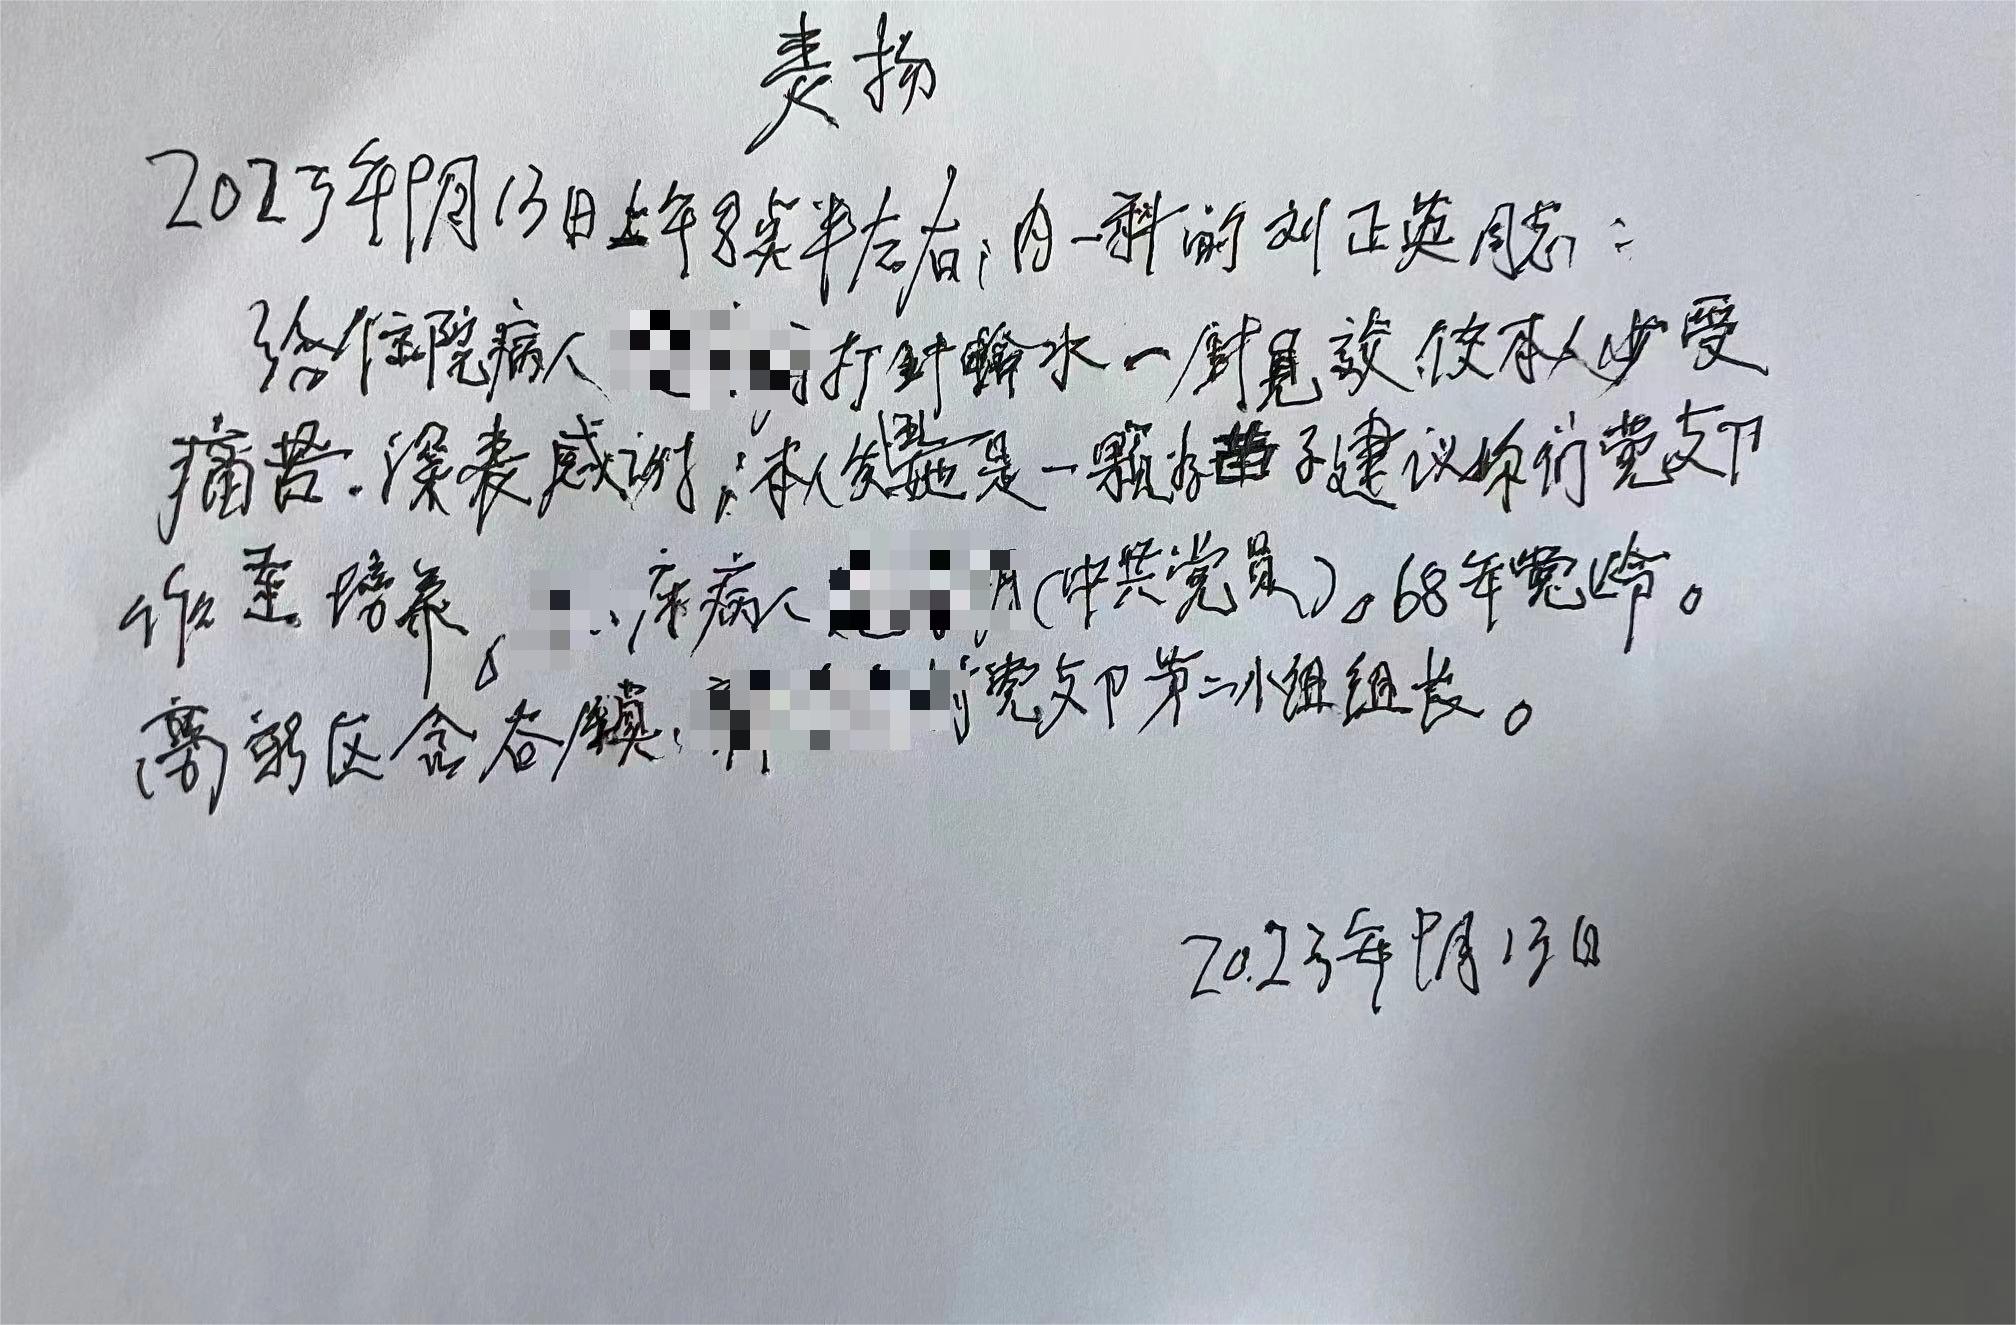 表扬
2023年9月13日上午8点半左右,内一科的刘正英同志:
给住院病人 打针输水一针见效使本人少受
痛苦.深表感谢;本人发现她是一颗好苗子建议你们党支卩
作重培养。 床病人 (中共党员)。68年党令。
高新区含谷镇, 党支卩第二小组组长。
2023年9月13日